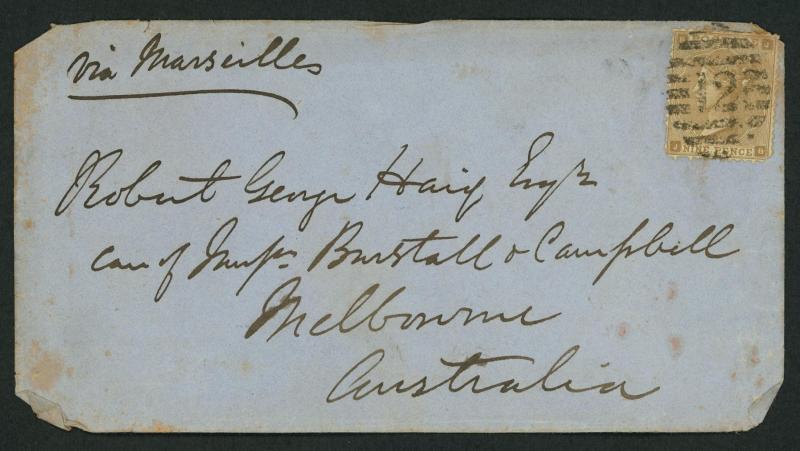 via Marseilles
12
NINE PENCE
Robert George Haig Esqr
care of Messrs Burstall & Campbell
Melbourne
Australia